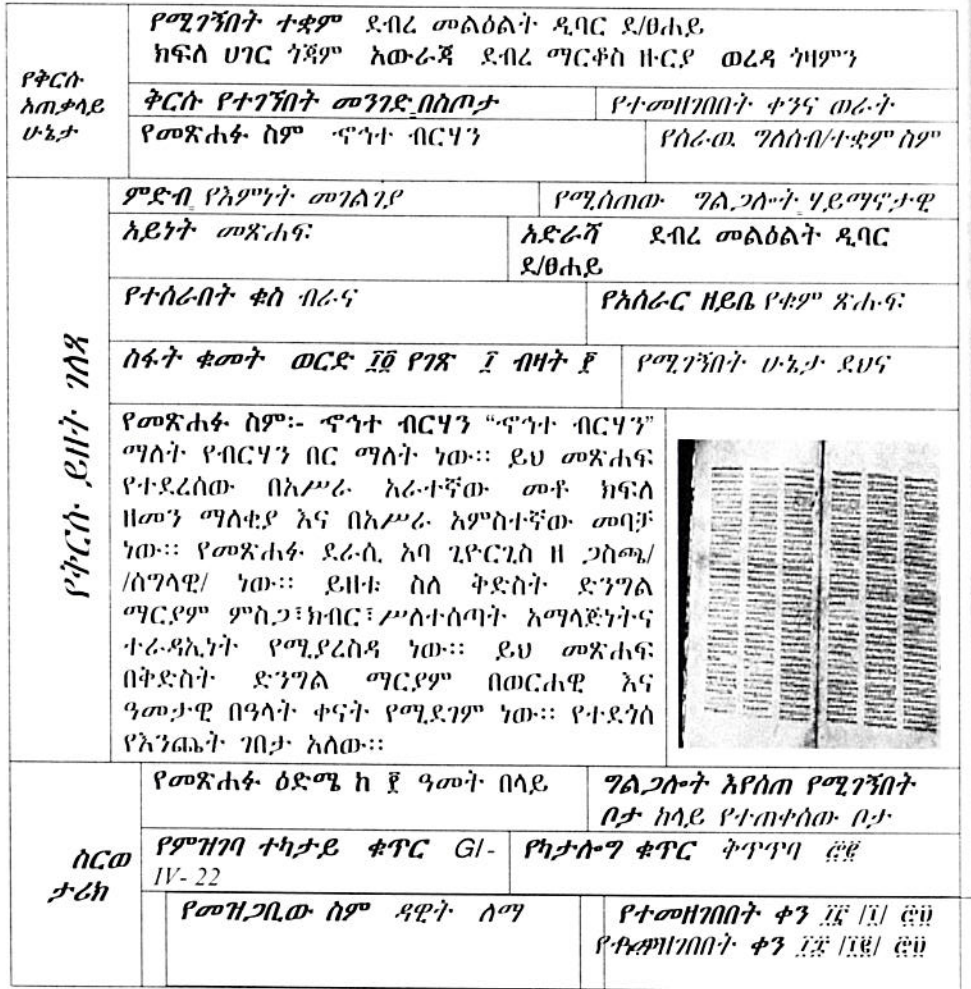 የሚገኝበት ተቋም ደብረ መልዕልት ዲባር ደ/ፀሐይ
ክፍለ ሀገር ጎጃም አውራጃ ደብረ ማርቆስ ዙርያ ወረዳ ጎዛምን
የቅርሱ አጠቃላይ ሁኔታ
ቅርሱ የተገኘበት መንገድ በስጦታ
የተመዘገበበት ቀንና ወራት
የመጽሐፉ ስም ኆኅተ ብርሃን
የሰራዉ ግለሰብ/ተቋም ስም
የቅርሱ ይዘት ገለጻ
ምድብ የእምነት መገልገያ
የሚሰጠው ግልጋሎት ሃይማኖታዊ
አይነት መጽሐፍ
አድራሻ ደብረ መልዕልት ዲባር
ደ/ፀሐይ
የተሰራበት ቁስ ብራና
የአሰራር ዘይቤ የቁም ጽሑፍ
ስፋት ቁመት ወርድ የገጽ ብዛት
የሚገኝበት ሁኔታ ደህና
የመጽሐፉ ስም፡- ኆኅተ ብርሃን “ኆኅተ ብርሃን”
ማለት የብርሃን በር ማለት ነው፡፡ ይህ መጽሐፍ
የተደረሰው በአሥራ አራተኛው መቶ ክፍለ
ዘመን ማለቂያ እና በአሥራ አምስተኛው መባቻ
ነው፡፡ የመጽሐፉ ደራሲ አባ ጊዮርጊስ ዘ ጋስጫ/
/ሰግላዊ/ ነው፡፡ ይዘቱ ስለ ቅድስት ድንግል
ማርያም ምስጋ፣ክብር፣ሥለተሰጣት አማላጅነትና
ተራዳኢነት የሚያረስዳ ነው፡፡ ይህ መጽሐፍ
በቅድስት ድንግል ማርያም በወርሐዊ እና
ዓመታዊ በዓላት ቀናት የሚደገም ነው፡፡ የተደጎሰ
የእንጨት ገበታ አለው፡፡
ስርወ ታሪክ
የመጽሐፉ ዕድሜ ከ ፻ ዓመት በላይ
ግልጋሎት እየሰጠ የሚገኝበት
ቦታ ከላይ የተጠቀሰው ቦታ
የምዝገባ ተካታይ ቁጥር GI-
IV- 22
የካታሎግ ቁጥር ቅጥጥባ
የመዝጋቢው ስም ዳዊት ለማ
የተመዘገበበት ቀን
ቀን